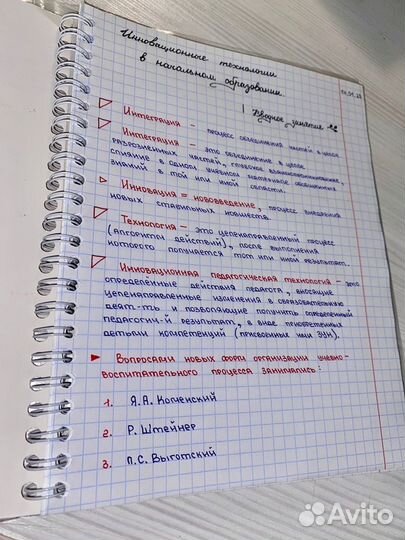 Инновационные технологии
в начальном образовании.
Вводное занятие
Интеграция - процесс объединения частей в целое
Интеграция - это объединение в целое
разрозненных частей, глубокое взаимопроникновение,
слияние в одном учебном материале обобщённых
знаний в той или иной области.
Инновация = нововведение, процесс внедрения
новых стабильных новшеств.
Технология - это целенаправленный процесс
(алгоритм действий), после выполнения
которого получается тот или иной результат.
Инновационная педагогическая технология - это
определённые действия педагога, вносящие
целенаправленные изменения в образовательную
деят-ть и позволяющие получить определённый
педагогич-й результат, в виде приобретённых
детьми компетенций (присвоенных ими ЗУН).
Вопросами новых форм организации учебно-
воспитательного процесса занимались:
1. Я.А. Коменский
2. Р. Штейнер
3. Л.С. Выготский
Avito